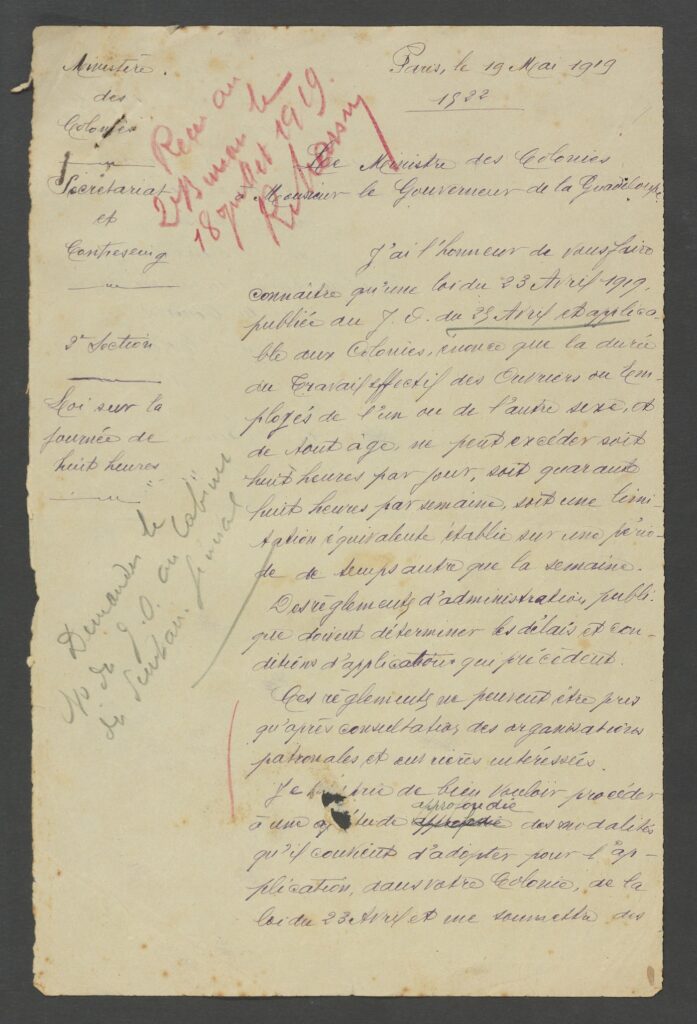 Ministère
des
Colonies
Secrétariat
et
Contreseing
2e Section
Loi sur la
journée de
huit heures
Reçu au
2e Bureau le
18 juillet 1919.
Demander le
No du J. O. au Cabinet
du
Paris, le 19 Mai 1919
1922
Le Ministre des Colonies
à Monsieur le Gouverneur de la Guadeloupe
J'ai l'honneur de vous faire
connaître qu'une loi du 23 Avril 1919,
publiée au J. O. du 25 Avril et applica-
ble aux Colonies, énonce que la durée
du Travail effectif des Ouvriers ou Em-
ployés de l'un ou de l'autre sexe, et
de tout âge, ne peut excéder soit
huit heures par jour, soit quarante
huit heures par semaine, soit une limi-
tation équivalente établie sur une pério-
de de temps autre que la semaine.
Des règlements d'administration publi-
que doivent déterminer les délais et con-
ditions d'application qui précèdent.
Ces règlements ne peuvent être pris
qu'après consultation des organisations
patronales et ouvrières intéressées.
Je prie de bien vouloir procéder
à une étude approfondie des modalités
qu'il convient d'adopter pour l'ap-
plication, dans votre Colonie, de la
loi du 23 Avril et me soumettre des